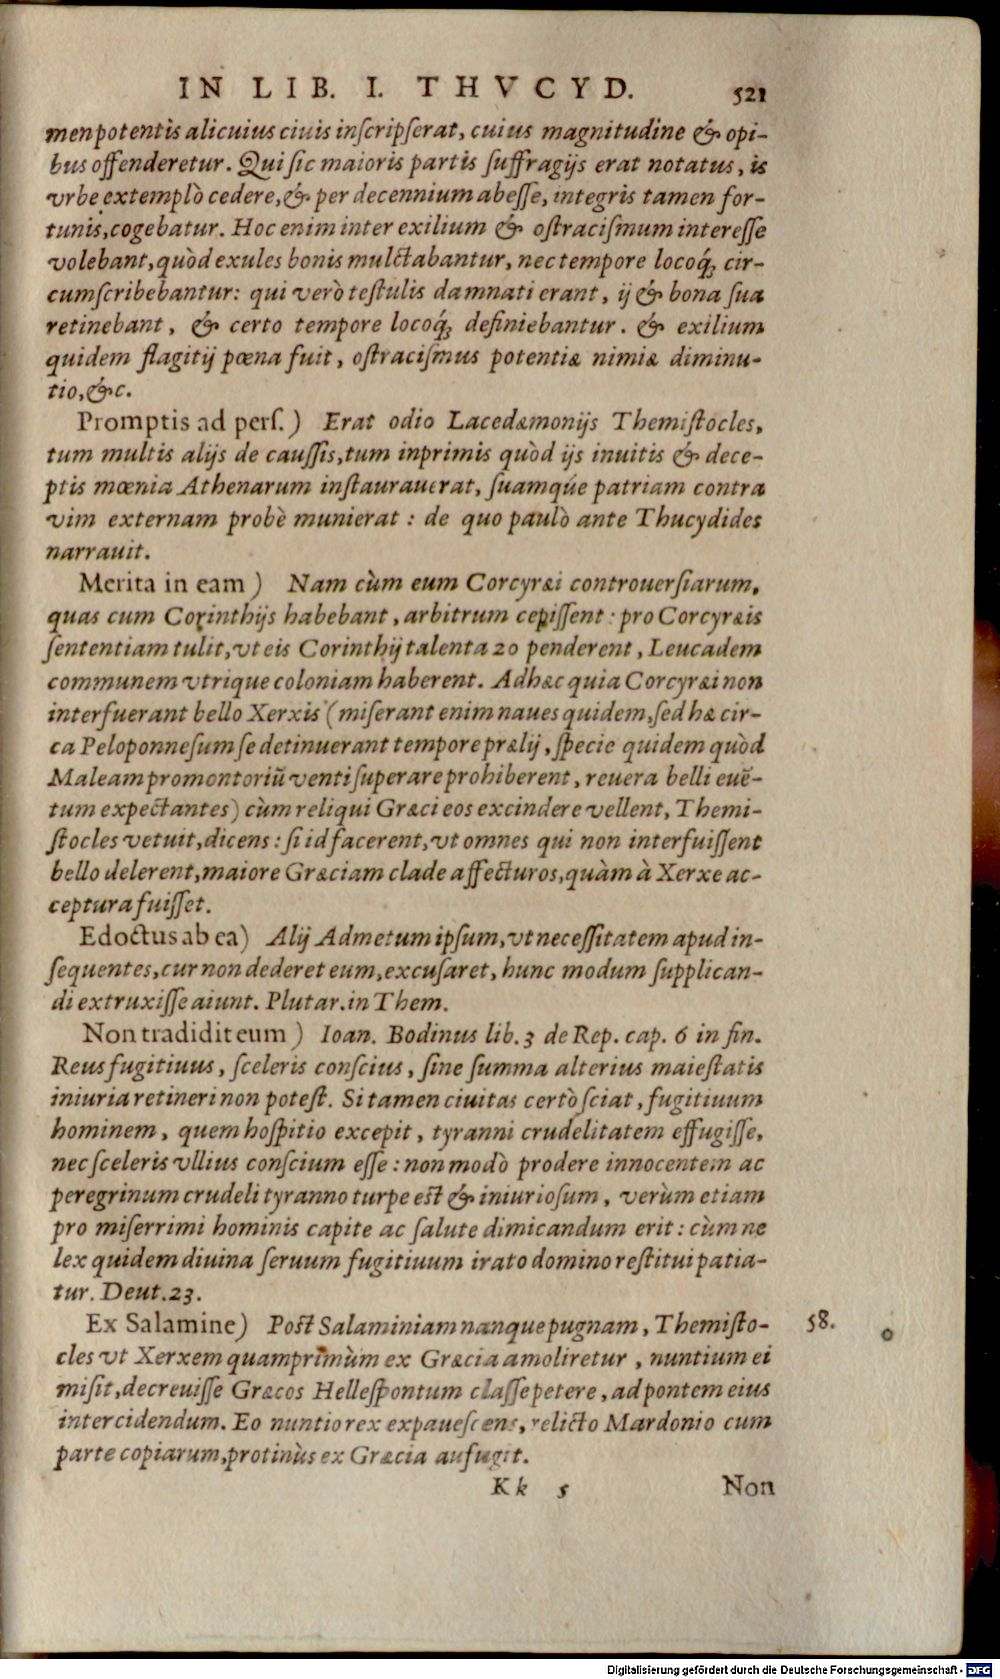 IN LIB. I. THVCYD. 521
men potentis alicuius ciuis inscripserat, cuius magnitudine & opi-
bus offenderetur. Qui sic maioris partis suffragijs erat notatus, is
vrbe extemplò cedere, & per decennium abesse, integris tamen for-
tunis, cogebatur. Hoc enim inter exilium & ostracismum interesse
volebant, quòd exules bonis mulctabantur, nec tempore locoq́; cir-
cumscribebantur: qui verò testulis damnati erant, ij & bona sua
retinebant, & certo tempore locoq́; definiebantur. & exilium
quidem flagitij pœna fuit, ostracismus potentiæ nimiæ diminu-
tio, &c.
Promptis ad pers.) Erat odio Lacedæmonijs Themistocles,
tum multis alijs de caussis, tum inprimis quòd ijs inuitis & dece-
ptis mœnia Athenarum instaurauerat, suamq́ue patriam contra
vim externam probè munierat : de quo paulò ante Thucydides
narrauit.
Merita in eam) Nam cùm eum Corcyræi controuersiarum,
quas cum Corinthijs habebant, arbitrum cepissent: pro Corcyræis
sententiam tulit, vt eis Corinthij talenta 20 penderent, Leucadem
communem vtrique coloniam haberent. Ad hæc quia Corcyræi non
interfuerant bello Xerxis (miserant enim naues quidem, sed hæ cir-
ca Peloponnesum se detinuerant tempore prælij, specie quidem quòd
Maleam promontoriũ venti superare prohiberent, reuera belli euẽ-
tum expectantes) cùm reliqui Græci eos excindere vellent, Themi-
stocles vetuit, dicens: si id facerent, vt omnes qui non interfuissent
bello delerent, maiore Græciam clade affecturos, quàm à Xerxe ac-
ceptura fuisset.
Edoctus ab ea) Alij Admetum ipsum, vt necessitatem apud in-
sequentes, cur non dederet eum, excusaret, hunc modum supplican-
di extruxisse aiunt. Plutar. in Them.
Non tradidit eum) Ioan. Bodinus lib. 3 de Rep. cap. 6 in fin.
Reus fugitiuus, sceleris conscius, sine summa alterius maiestatis
iniuria retineri non potest. Si tamen ciuitas certò sciat, fugitiuum
hominem, quem hospitio excepit, tyranni crudelitatem effugisse,
nec sceleris vllius conscium esse: non modò prodere innocentem ac
peregrinum crudeli tyranno turpe est & iniuriosum, verùm etiam
pro miserrimi hominis capite ac salute dimicandum erit: cùm ne
lex quidem diuina seruum fugitiuum irato domino restitui patia-
tur. Deut. 23.
Ex Salamine) Post Salaminiam nanque pugnam, Themisto- 58.
cles vt Xerxem quamprimùm ex Græcia amoliretur, nuntium ei
misit, decreuisse Græcos Hellespontum classe petere, ad pontem eius
intercidendum. Eo nuntio rex expauescens, relicto Mardonio cum
parte copiarum, protinùs ex Græcia aufugit.
Kk 5 Non
Digitalisierung gefördert durch die Deutsche Forschungsgemeinschaft - DFG